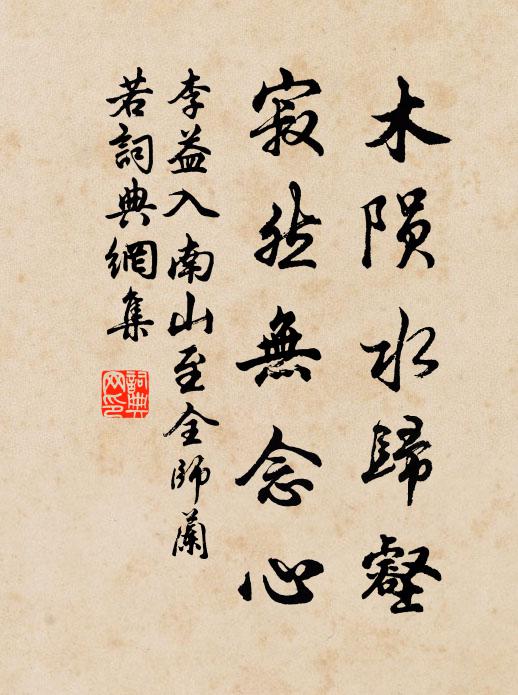 木陨水歸壑
寂然無念心
李益入南山至全師蘭
若詞典網集
詞典
网印